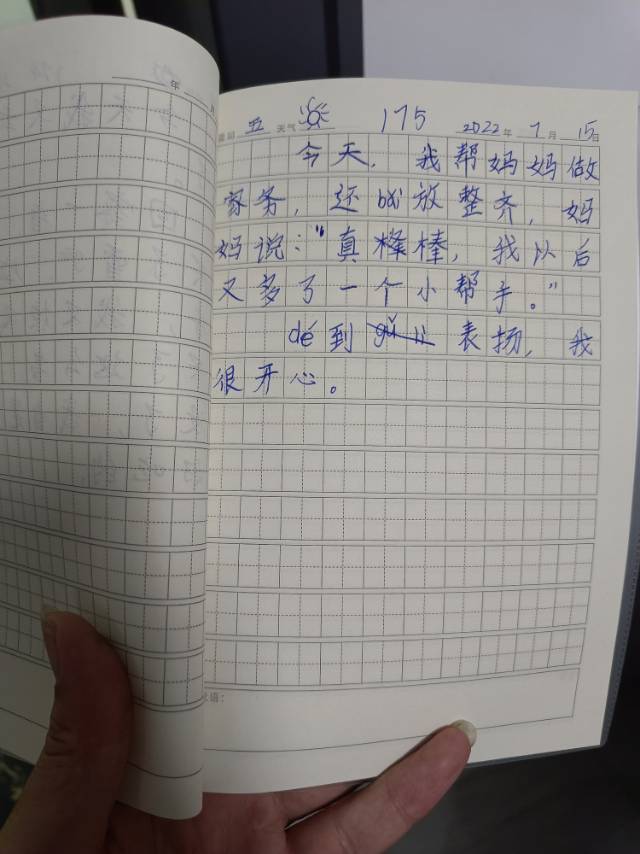 星期 五 天气 175 2022年 7月 15日
今天，我帮妈妈做
家务，还bǎi放整齐，妈
妈说：“真棒棒，我以后
又多了一个小帮手。”
dé到gǔ lì表扬，我
很开心。